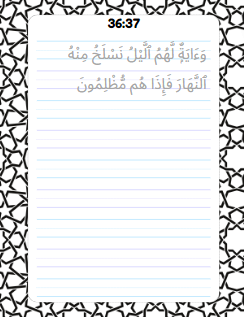 36:37
وَءَايَةٌ لَّهُمُ ٱلَّيْلُ نَسْلَخُ مِنْهُ
ٱلنَّهَارَ فَإِذَا هُم مُّظْلِمُونَ